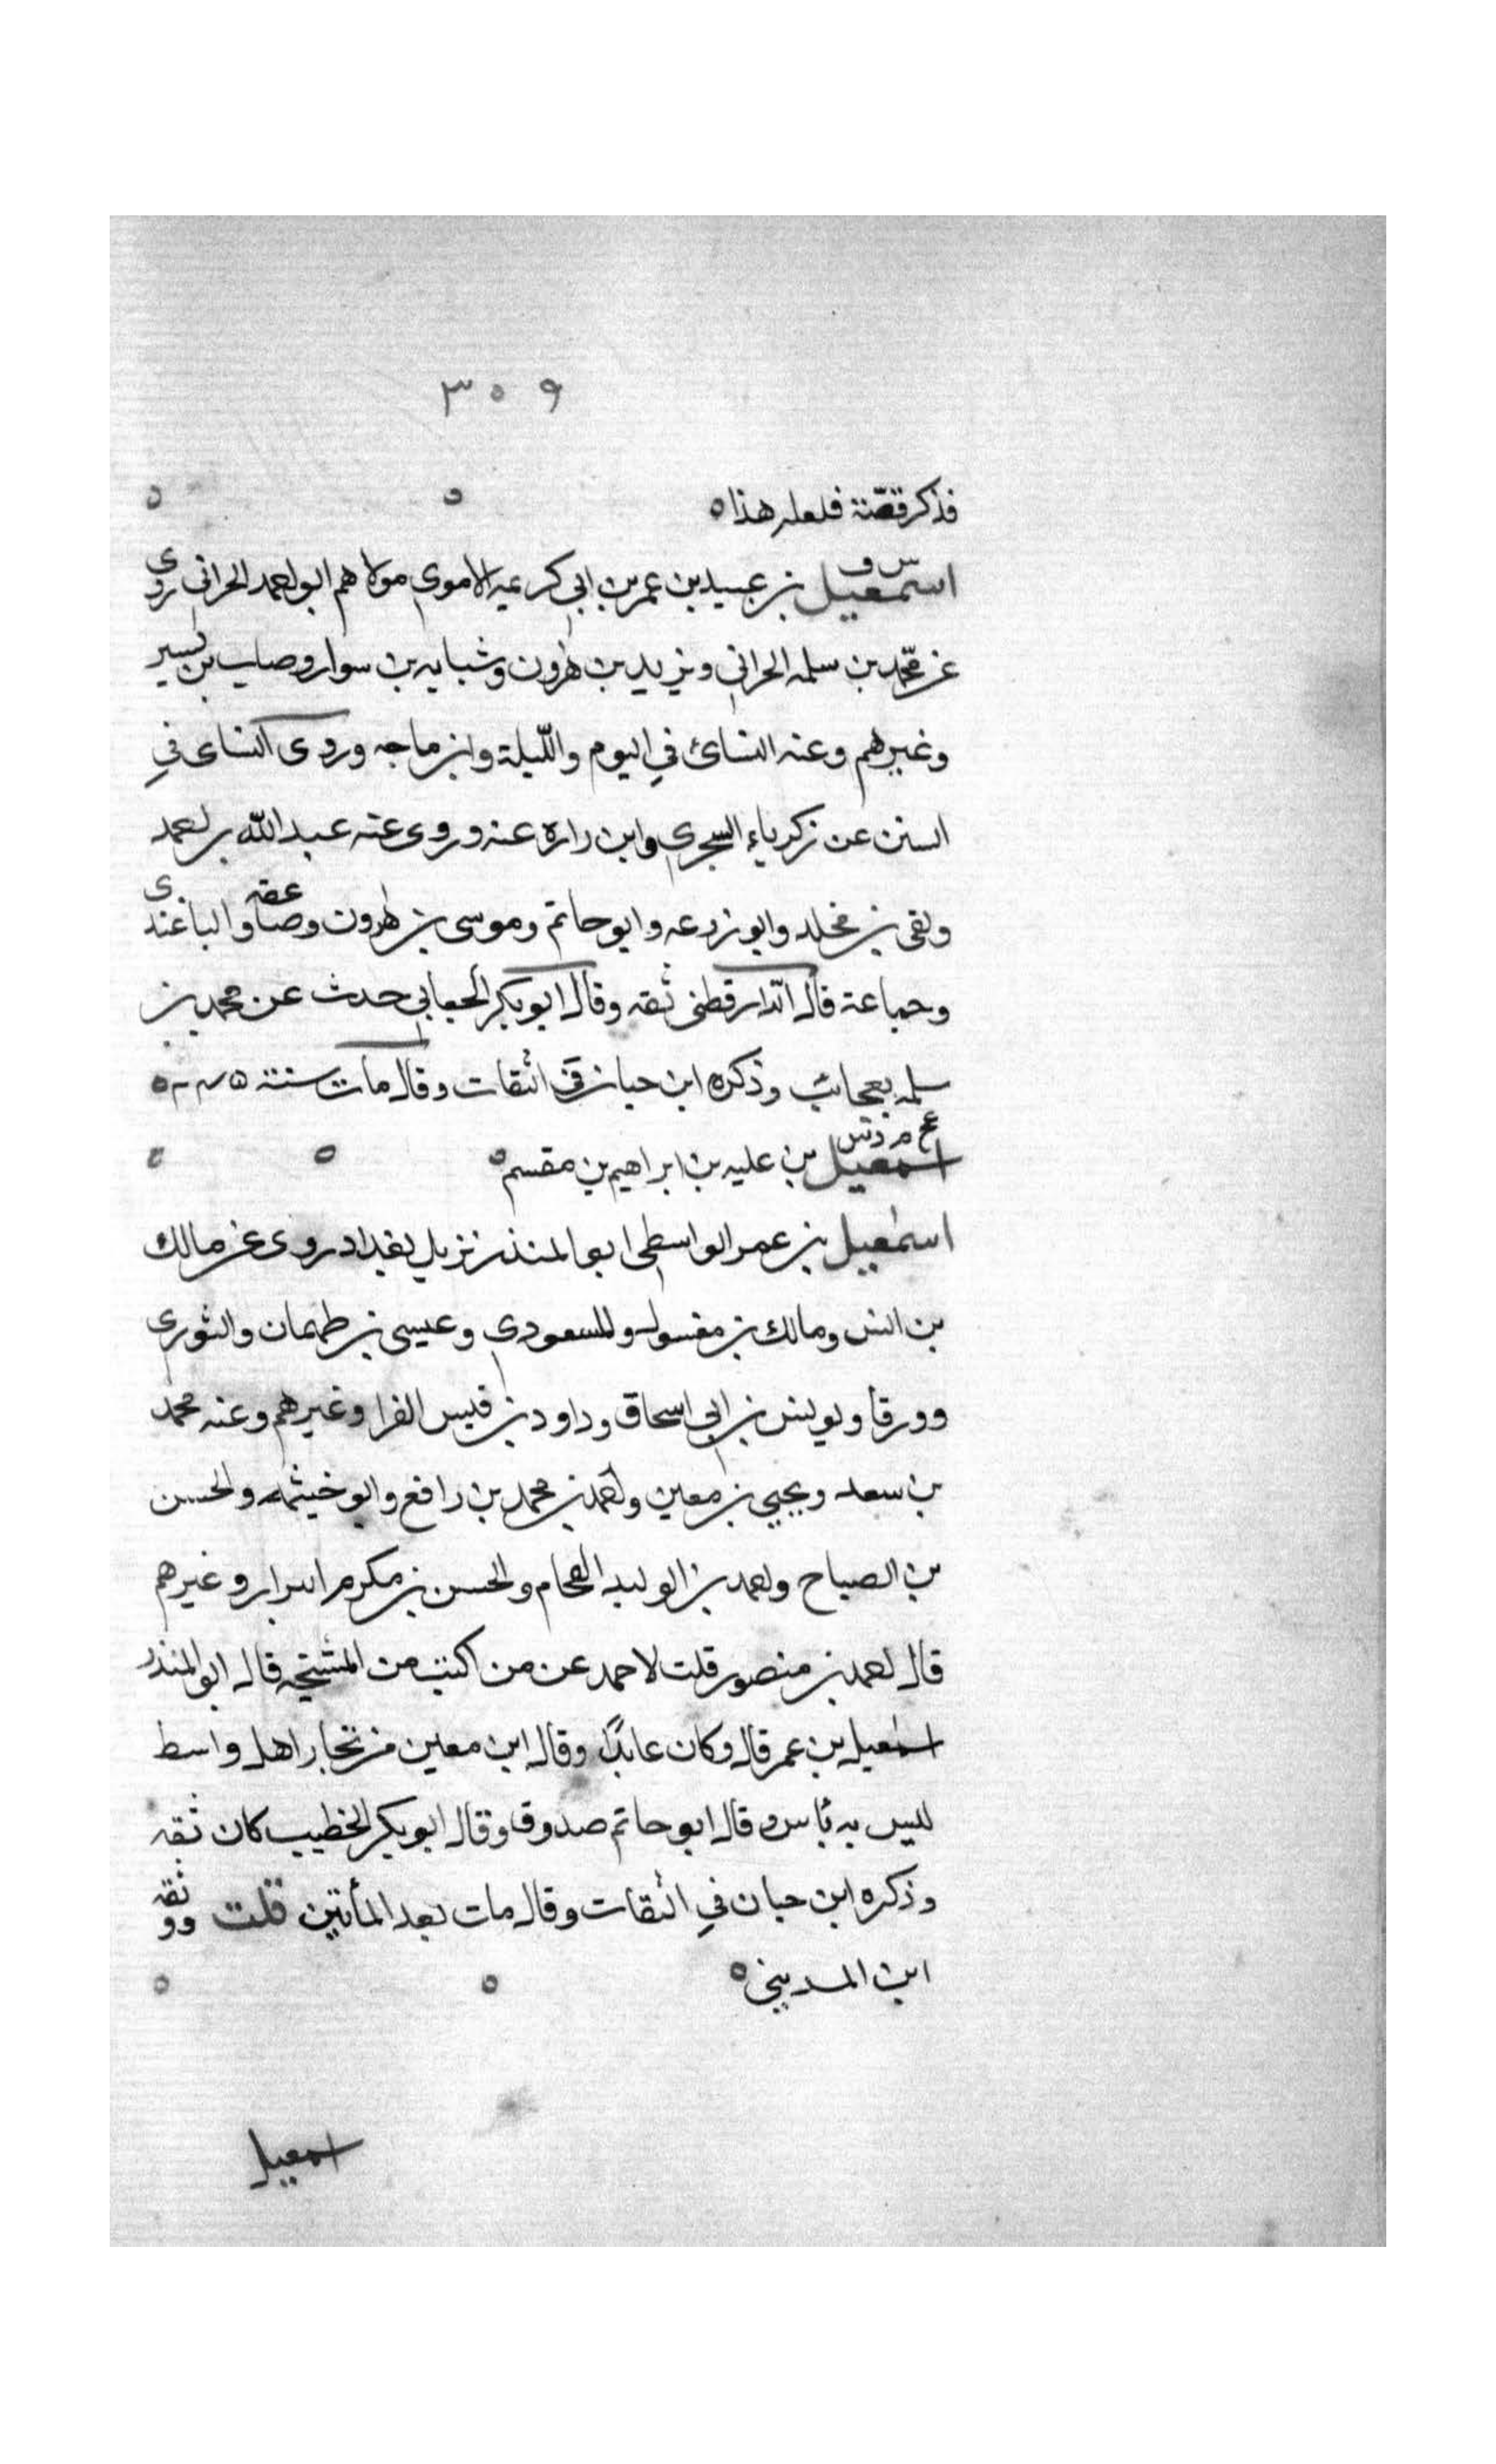 ٣٥٩
فذكر قصّة فلعله هذا ٥ ٥ ٥
س ق
اسمعيل بن عبيد بن عمر بن ابي كريمه الاموي مولاهم ابو احمد الحراني روى
عن محمد بن سلمه الحراني ويزيد بن هٰرون وشبابه بن سوار و بن بشير
وغيرهم وعنه النسائ في اليوم والليلة وابن ماجه وروى النساى في
السنن عن زكرياء السجزي وابن وارة عنه وروى عنه عبد الله بن احمد
وبقى بن مخلد وابو زرعه وابو حاتم وموسى بن هٰرون و والباغندى
وجماعة قال الدارقطنى ثقه وقال ابو بكر الجعابي حدث عن محمد بن
سلمه بعجائب وذكره ابن حبان في الثقات وقال مات سنة
اسمعيل بن عليه بن ابراهيم بن مقسم ٥ ٥ ٥
اسمٰعيل بن عمر الواسطي ابو المنذر نزيل بغداد روى عن مالك
بن انس ومالك بن مغول والمسعودي وعيسى بن طهمان والثوري
وورقا ويونس بن ابي اسحاق وداود بن قيس الفرا وغيرهم وعنه محمد
بن سعد ويحيي بن معين واحمد بن محمد بن رافع وابو خيثمه والحسن
بن الصباح واحمد بن الوليد الفحام والحسن بن مكرم البزار وغيرهم
قال احمد بن منصور قلت لاحمد عن من اكتب من المشيخه قال ابو المنذر
اسمٰعيل بن عمر قال وكان عابدًا وقال ابن معين من تجار اهل واسط
ليس به بأس وقال ابو حاتم صدوق وقال ابو بكر الخطيب كان ثقه
وذكره ابن حبان في الثقات وقال مات بعد المأتين قلت ووثقه
ابن المديني ٥ ٥ ٥
اسمعيل